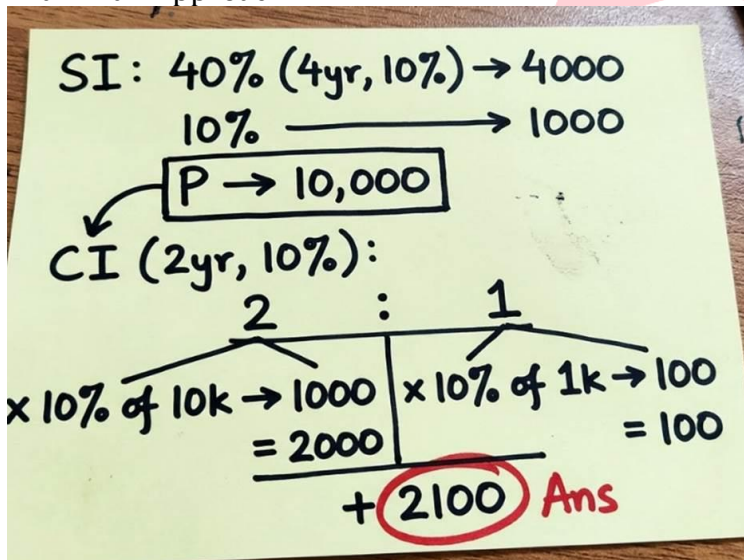 SI: 40% (4yr, 10%) → 4000
10% → 1000
P → 10,000
CI (2yr, 10%):
2 : 1
x 10% of 10k → 1000 x 10% of 1k → 100
= 2000 = 100
+ 2100 Ans